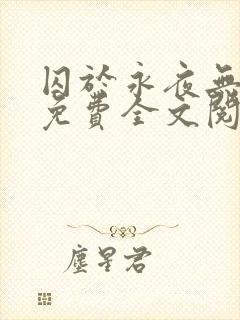 囚於永夜無
免費全文閱
塵星君